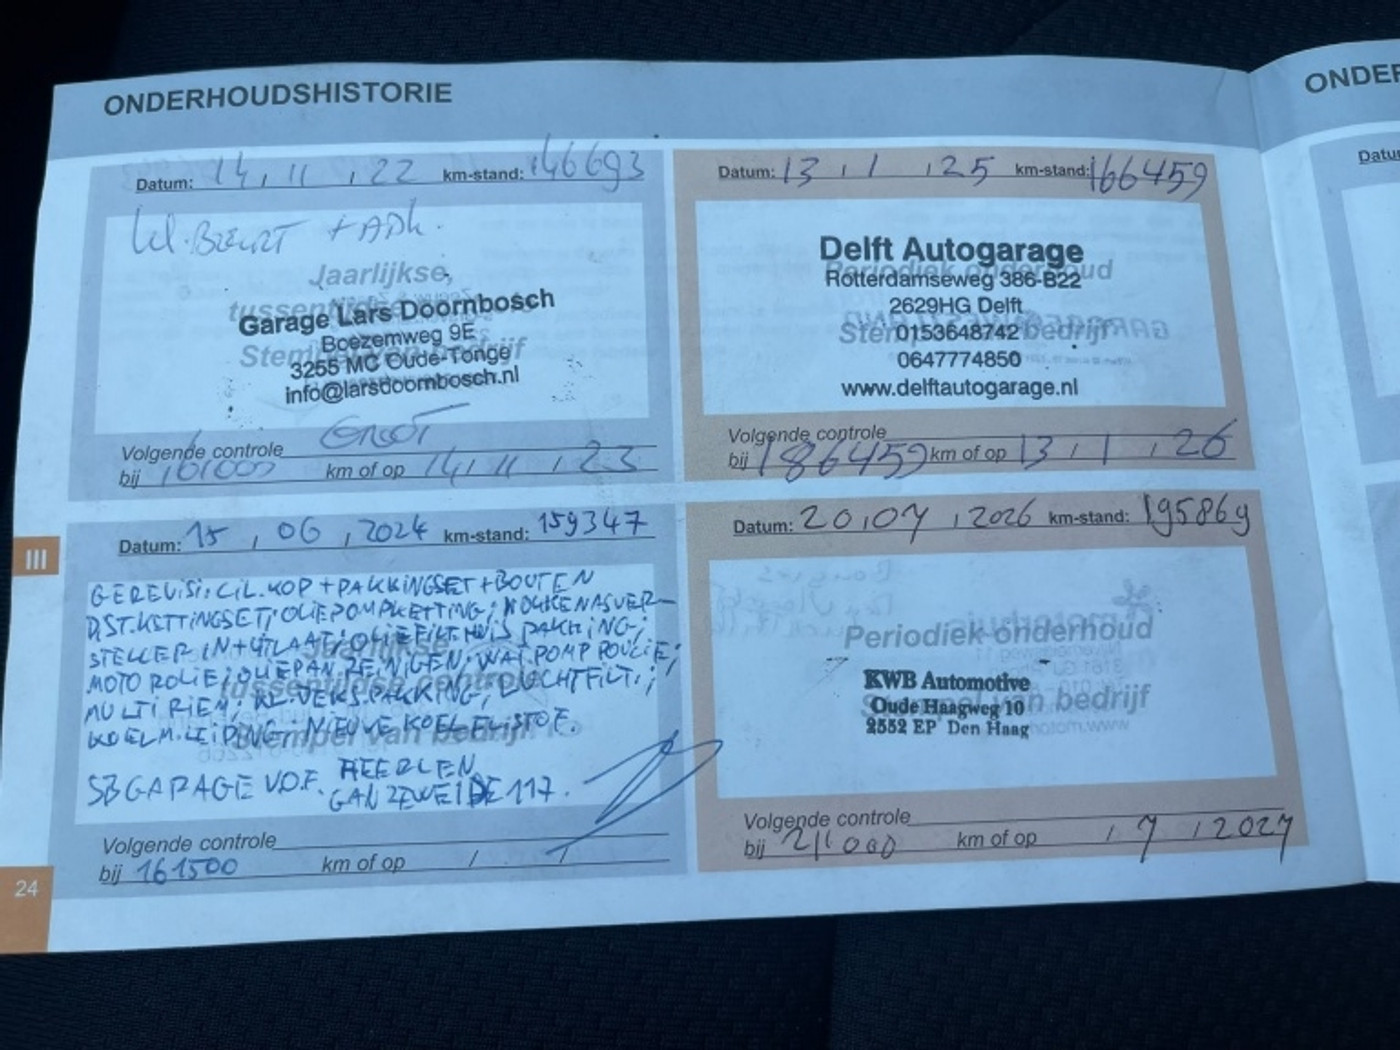 ONDERHOUDSHISTORIE
Datum: 14, 11, 22 km-stand: 146693
kl. BEURT + APK.
Jaarlijkse,
Garage Lars Doornbosch
Boezemweg 9E
3255 MC Oude-Tonge
info@larsdoornbosch.nl
Volgende controle GROOT
bij 161000 km of op 14, 11, 23
Datum: 13, 1, 25 km-stand: 166459
Delft Autogarage
Periodiek onderhoud
Rotterdamseweg 386-B22
2629HG Delft
Stempel van bedrijf
0153648742
0647774850
www.delftautogarage.nl
Volgende controle
bij 186459 km of op 13, 1, 26
Datum: 15, 06, 2024 km-stand: 159347
GEREVISI. CIL.KOP + PAKKINGSET + BOUTEN
DIST.KETTINGSET; OLIEPOMPKETTING; NOKKENASVER-
STELLER IN + UITLAAT; OLIEFILT.HUIS PAKKING;
MOTOROLIE; OLIEPAN REINIGEN; WAT.POMP POULIE;
MULTIRIEM; KL.DEKS.PAKKING; LUCHTFILT.;
KOELM.LEIDING. NIEUWE KOELVLISTOF.
Stempel van bedrijf
SB GARAGE V.O.F. HEERLEN
GANZEWEIDE 117.
Volgende controle
bij 161500 km of op / /
Datum: 20, 07, 2026 km-stand: 195869
Periodiek onderhoud
KWB Automotive
Oude Haagweg 10
Stempel van bedrijf
2552 EP Den Haag
Volgende controle
bij 211000 km of op , 7, 2027
III
24
ONDER
Datu